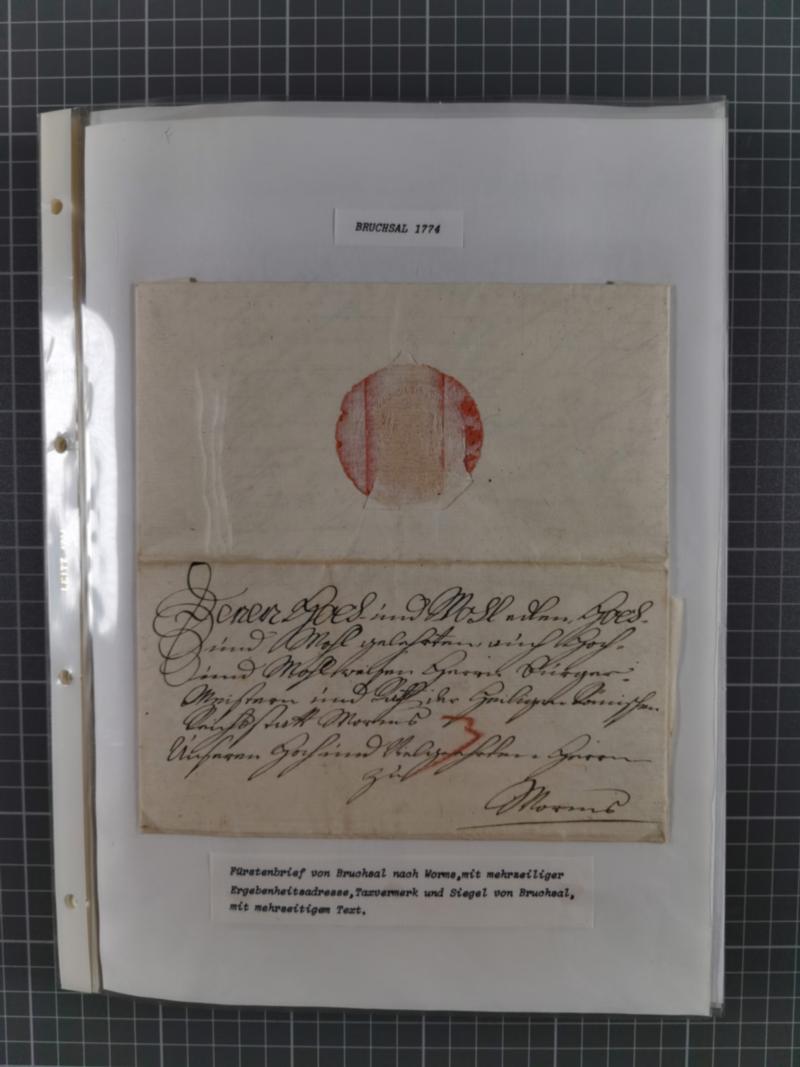 BRUCHSAL 1774
Denen Hoch- und Wohl edlen, Hoch-
und Wohl gelehrten, auch Hoch-
und Wohlweisen Herrn Bürger-
Meistern und Rath der Heiligen Römischen
Reichsstatt Worms
3
Unseren Hoch und Vielgeehrten Herrn
zu
Worms
Fürstenbrief von Bruchsal nach Worms,mit mehrzeiliger
Ergebenheitsadresse,Taxvermerk und Siegel von Bruchsal,
mit mehrseitigem Text.